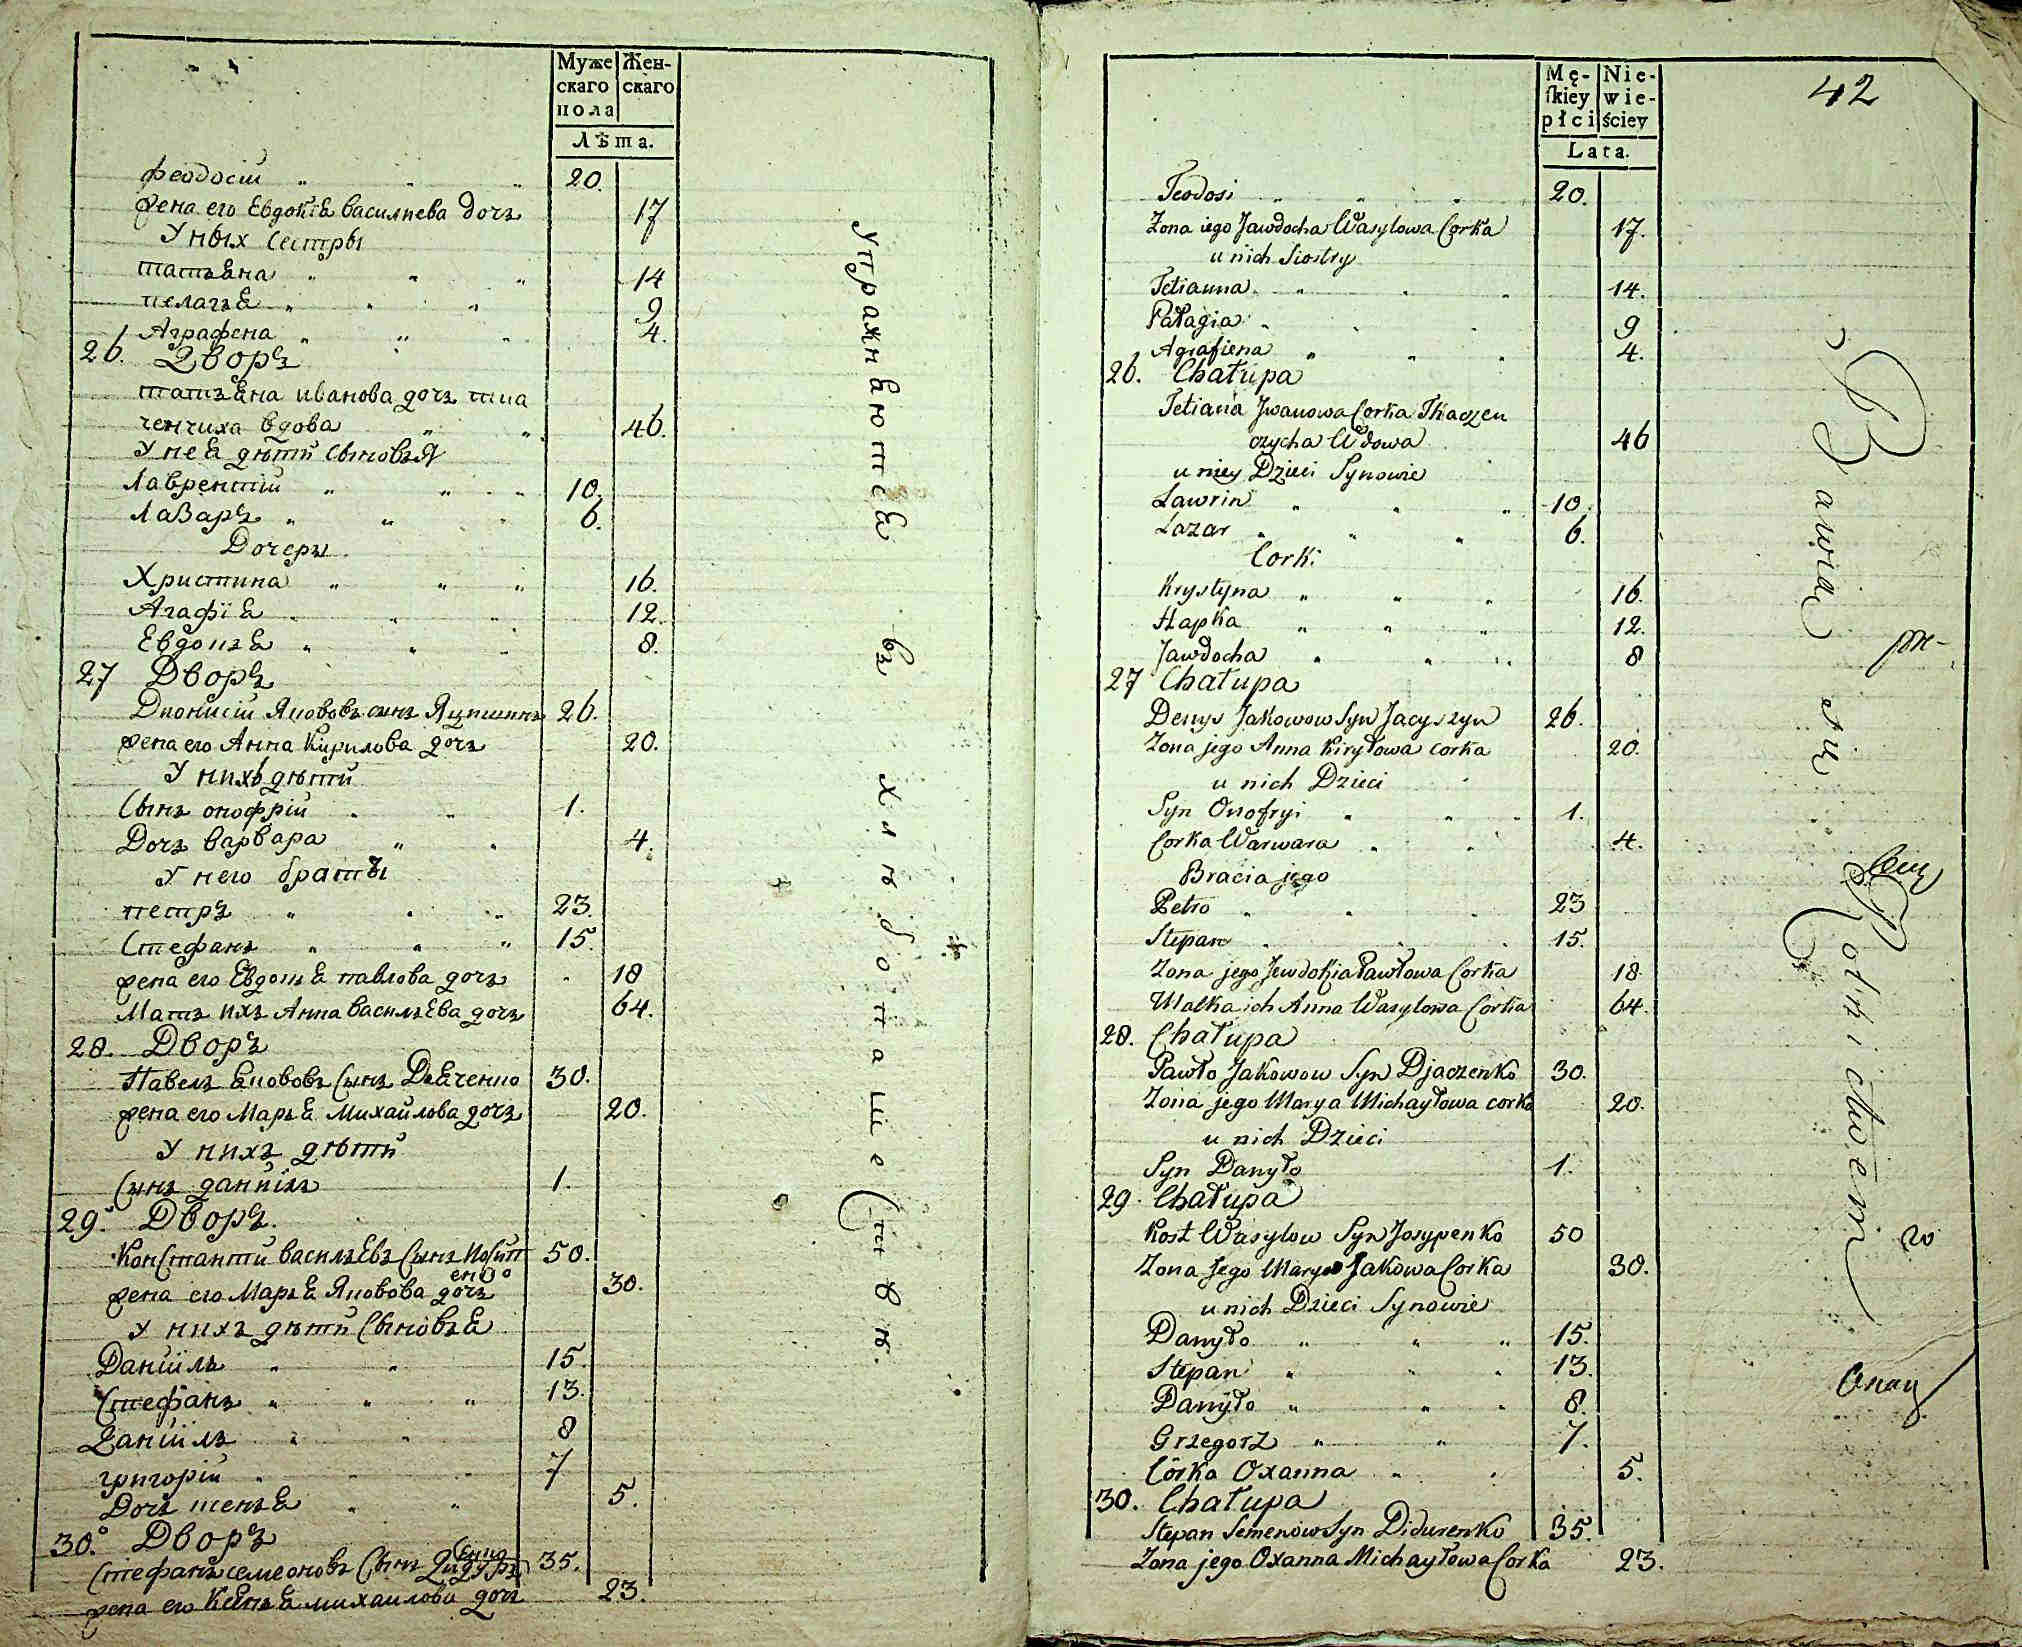 Муже
скаго
пола
Жен-
скаго
Лѣта.
Феодосій „ „ „ 20.
жена его Евдокіѧ васильева дочъ 17
У ных Сестры
татьѧна „ „ „ 14
пелагьѧ „ „ „ 9
Аграфена „ „ „ 4.
26. Дворъ
татьѧна иванова дочъ тка
ченчиха вдова „ „ 46.
У неѧ дѣти Сыновья
Лаврентій „ „ „ 10.
Лазаръ „ „ „ 6.
Дочеры
Христина „ „ „ 16.
Агафіѧ „ „ „ 12.
Евдокъѧ „ „ „ 8.
27 Дворъ
Дионисій Якововъ сынъ Яцишинъ 26.
жена его Анна Кирилова дочъ 20.
У нихъ дѣти
Сынъ онофрій „ „ 1.
Дочъ варвара „ „ 4.
У него браты
петръ „ „ „ 23.
Стефанъ „ „ „ 15.
жена его Евдокѧ павлова дочъ 18
Мать ихъ Анна васильѧва дочъ 64.
28. Дворъ
Павелъ ѧкововъ Сынъ Дѧченко 30.
жена его Марьѧ михайлова дочъ 20.
У нихъ дѣти
Сынъ данніилъ 1.
29. Дворъ
Константи васильѧвъ Сынъ Иосип
енко 50.
жена его Марьѧ Яковова дочъ 30.
У нихъ дѣти Сыновьѧ
Даниилъ „ „ 15.
Стефанъ „ „ „ 13.
Даниилъ „ „ 8
григорій „ „ „ 7
Дочъ „ „ 5.
30. Дворъ
Стефанъ семеоновъ Сынъ Дидур
енко 35.
жена его михаилова дочъ 23.
Упражнѧютсѧ въ хлѣбопашеСтвѣ.
Mę-
ſkiey
płci
Nie-
wie-
ściey
Lata.
42
Teodosi „ „ „ 20.
Zona iego Jawdocha Wasylowa Corka 17.
u nich Siostry
Tetianna „ „ „ 14.
Pałagia „ „ „ 9
Agrafiena „ „ „ 4.
26. Chałupa
Tetiana Jwanowa Corka Tkaczen
czycha Wdowa 46
u niey Dzieci Synowie
Lawrin „ „ „ 10.
Lazar „ „ „ 6.
Corki
Krystyna „ „ „ 16.
Hapka „ „ „ 12.
Jawdocha „ „ „ 8
27 Chałupa
Denys Jakowow Syn Jacyszyn 26.
Zona jego Anna Kiryłowa corka 20.
u nich Dzieci
Syn Onofryi „ „ „ 1.
Corka Warwara „ „ 4.
Bracia jego
Petro „ „ „ 23
Stepan „ „ „ 15.
Zona jego Jewdokia Pawłowa Corka 18
Matka ich Anna Wasylowa Corka 64.
28. Chałupa
Pawło Jakowow Syn Djaczenko 30.
Zona jego Marya Michayłowa corka 20.
u nich Dzieci
Syn Danyło 1.
29. Chałupa
Kost Wasylow Syn Josypenko 50
Zona Jego Marya Jakowa Corka 30.
u nich Dzieci Synowie
Danyło „ „ „ 15.
Stepan „ „ „ 13.
Danyło „ „ „ 8.
Grzegorz „ „ 7.
Córka Oxanna „ „ 5.
30. Chałupa
Stepan Semenow Syn Didurenko 35.
Zona jego Oxanna Michayłowa Corka 23.
Bawią się Rolnictwem